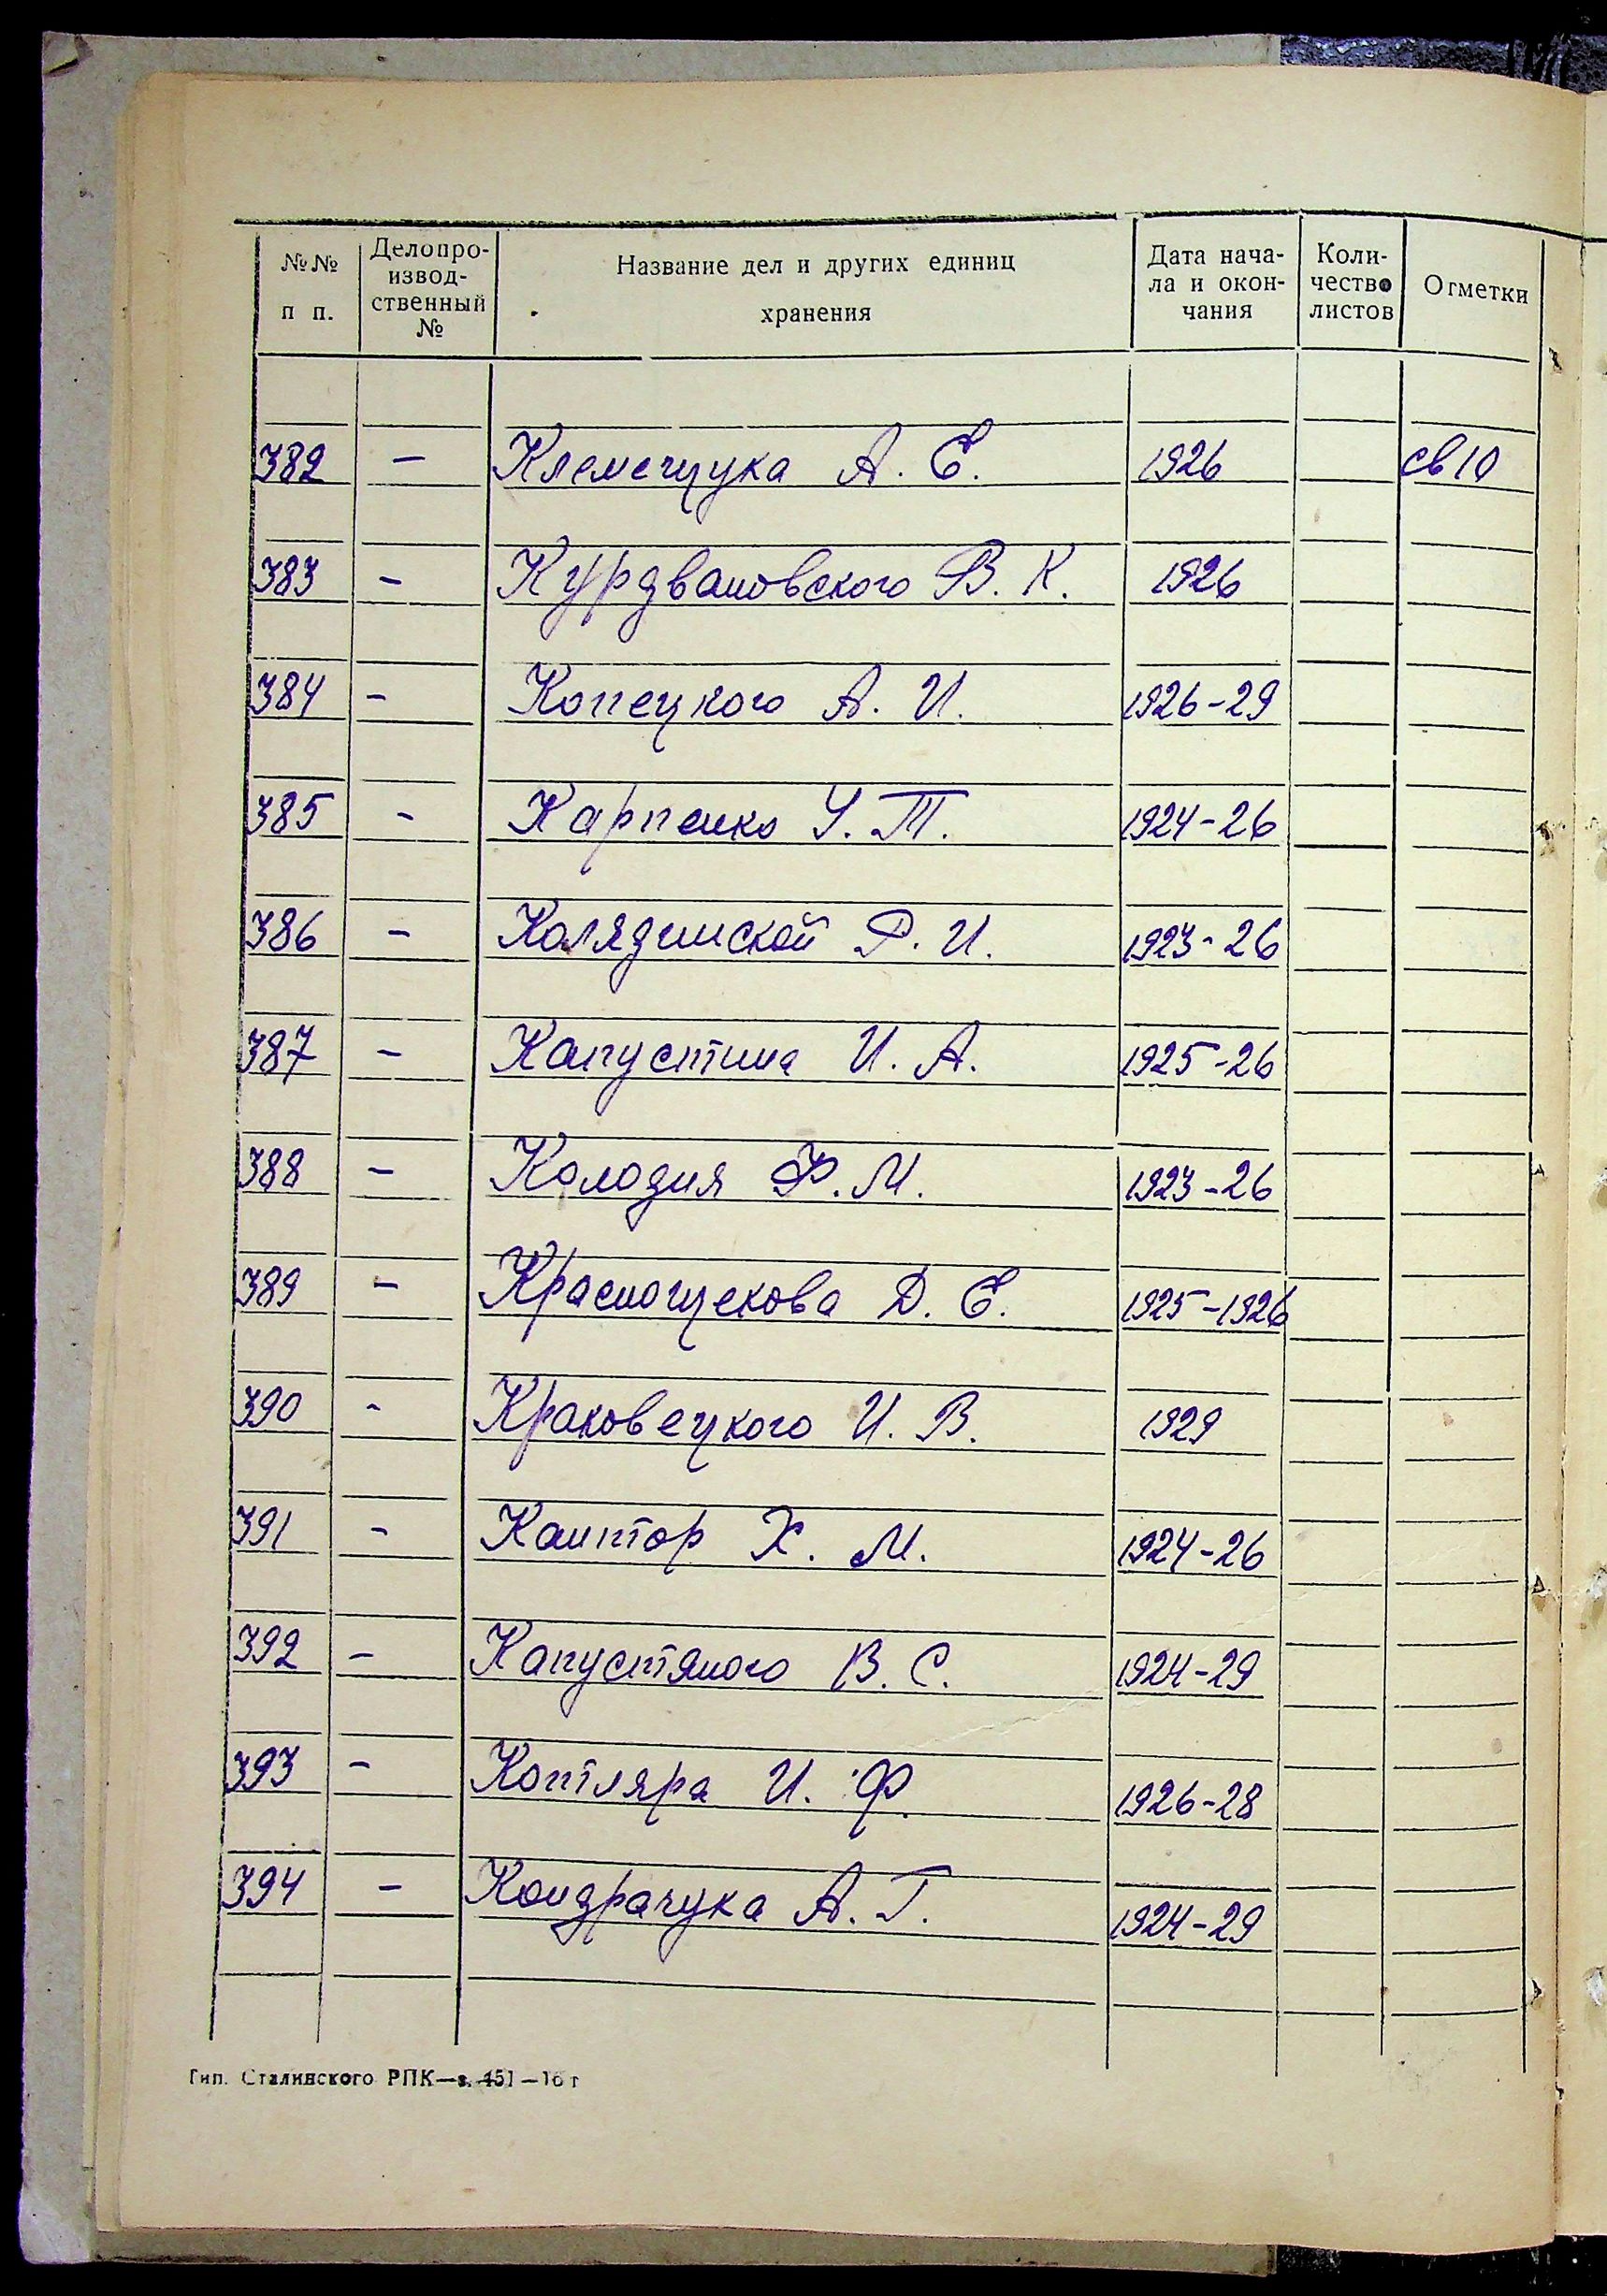 №№ п п. Делопроизвод-ственный № Название дел и других единиц хранения Дата нача-ла и окон-чания Коли-чество листов Отметки
382 – Клемчука А. Е. 1926 св 10
383 – Курдвановского В. К. 1926
384 – Копецкого А. И. 1926-29
385 - Карпенко У. Т. 1924-26
386 – Колядинской Р. И. 1923-26
387 – Капустина И. А. 1925-26
388 – Колодия Ф. М. 1923-26
389 – Д. Е. 1925-1926
390 - Краковецкого И. В. 1929
391 - Кантор Х. М. 1924-26
392 – Капустяного В. С. 1924-29
393 – Котляра И. Ф. 1926-28
394 – Кондрачука А. Г. 1924-29
Тип. Сталинского РПК—з. 451—16т